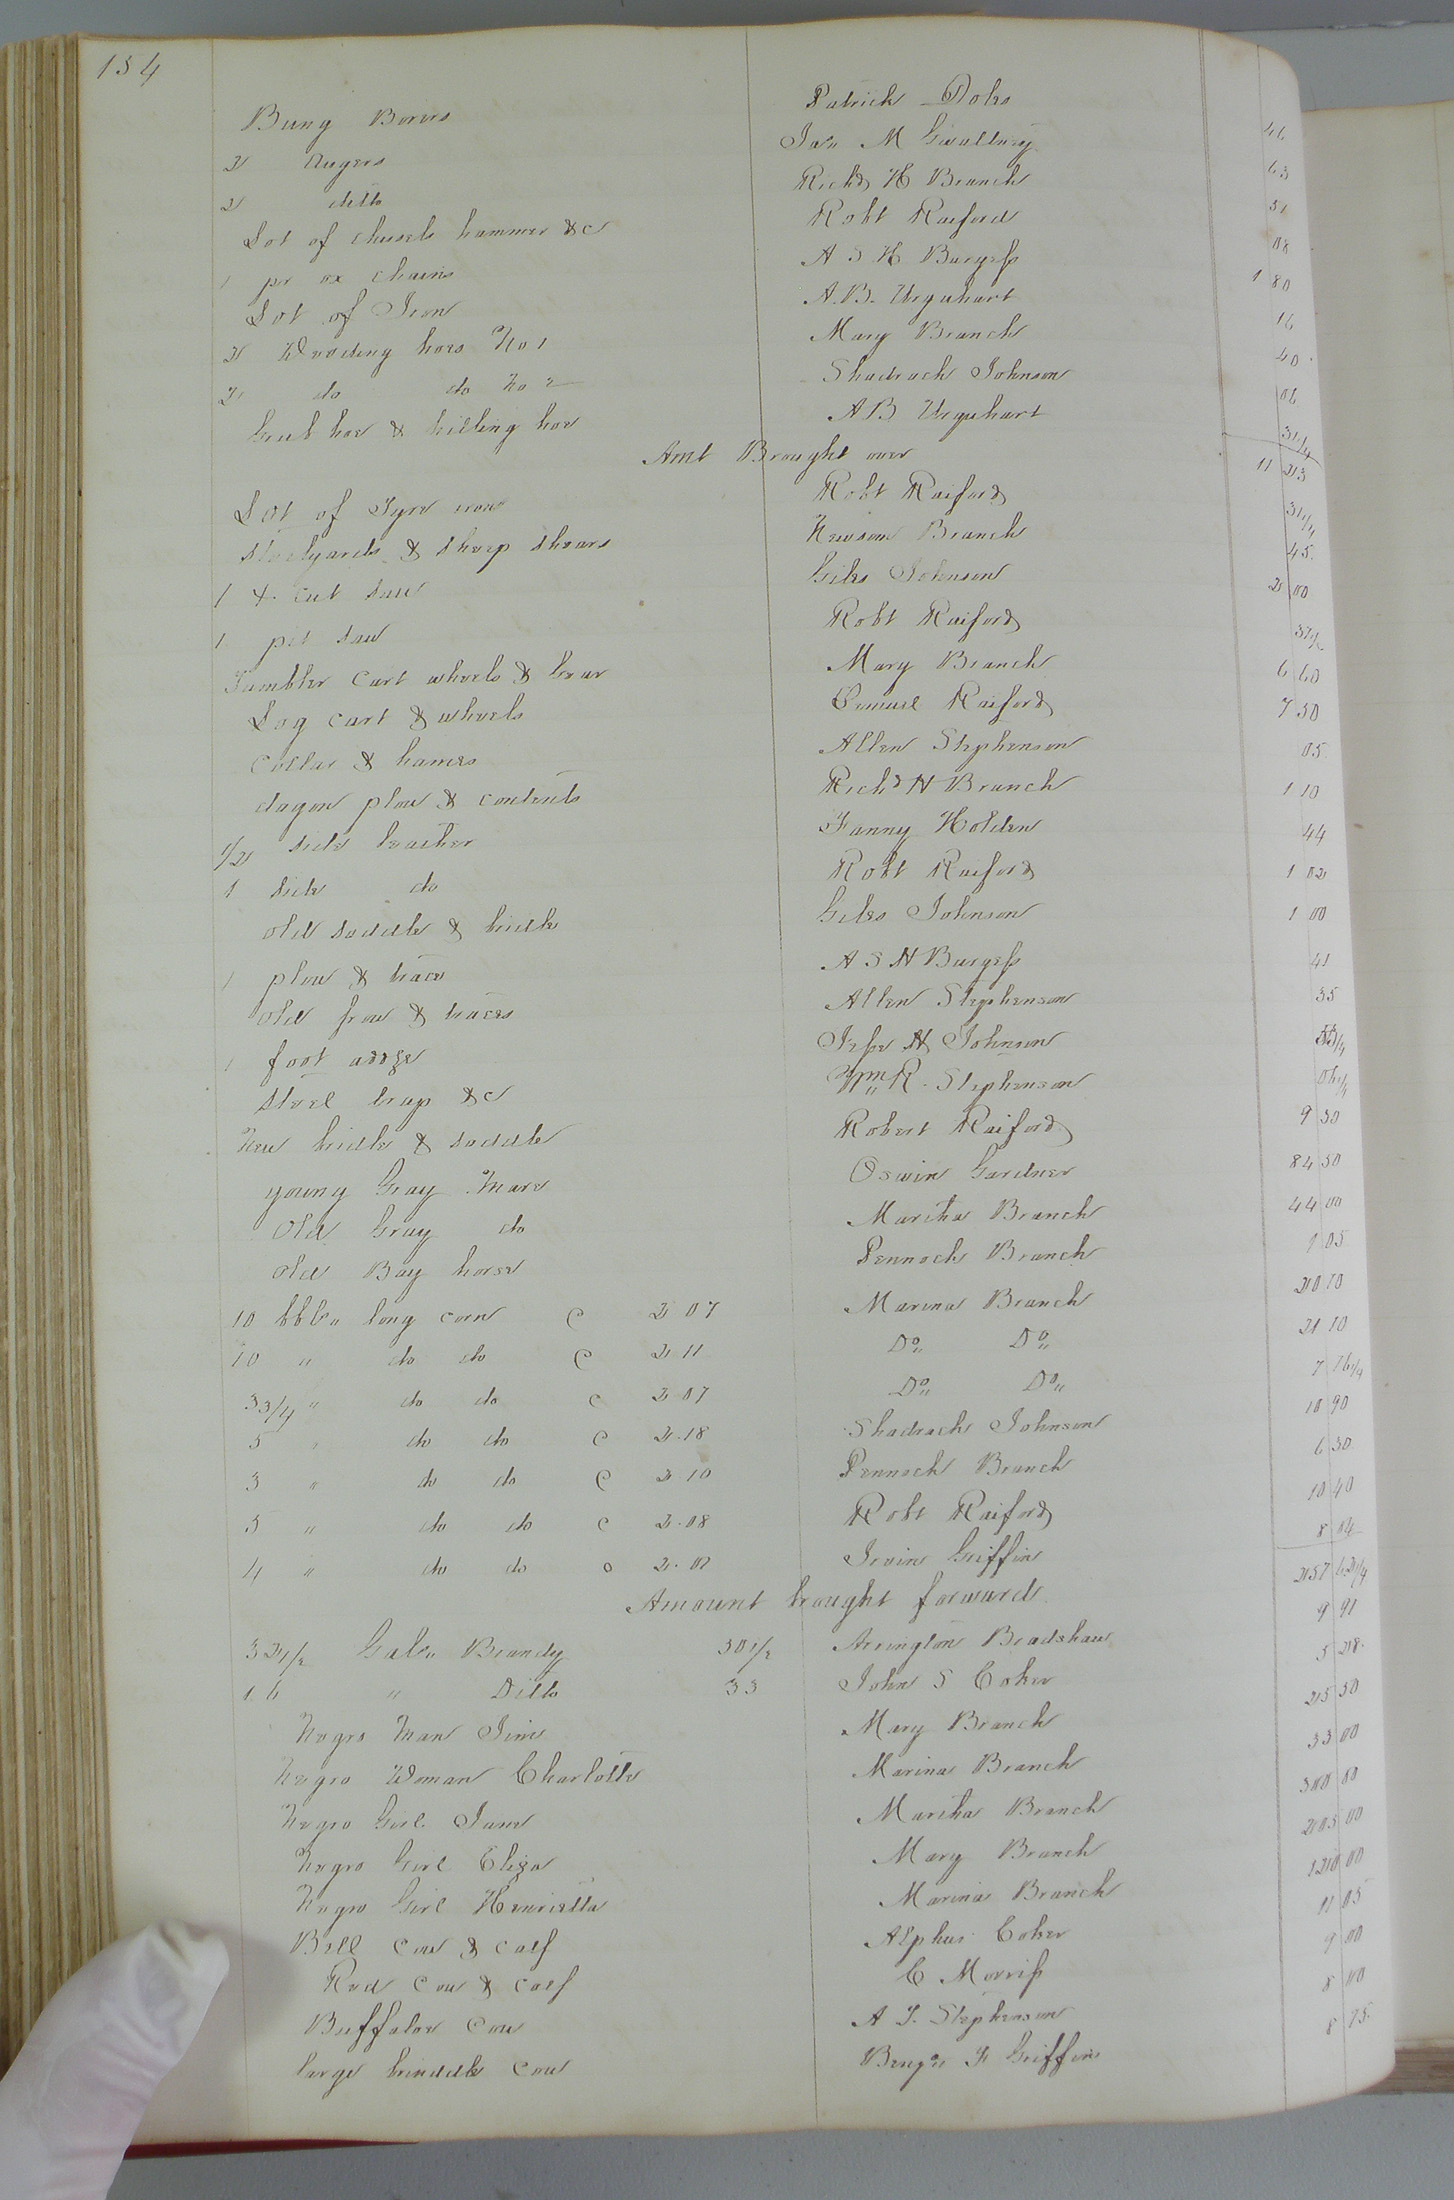 154
Bung Borers Patrick Doles 46
2 Augers Jas M Gwaltney 63
2 ditto Richd H Branch 51
Lot of chisels hammer &c Robt Raiford 08
1 pr ox chains A S H Burgess 1 80
Lot of Iron A. B. Urquhart 16
2 Weeding hoes No 1 Mary Branch 40
2 do do No 2 Shadrach Johnson 06
Grub hoe & hilling hoe A B Urquhart 31 1/4
Amt Brought over 11 23
Lot of Tyre iron Robt Raiford 31 1/4
Steelyards & Sheep Shears Newsom Branch 45
1 X cut Saw Giles Johnson 2 00
1 pit Saw Robt Raiford 37 1/2
Tumbler Cart wheels & Gear Mary Branch 6 60
Log cart & wheels Lemuel Raiford 7 50
Collar & hames Allen Stephenson 05
dagon plow & contents Richd H Branch 1 10
1/2 Side Leather Fanny Holden 44
1 Side do Robt Raiford 1 02
old Saddle & bridle Giles Johnson 1 00
1 plow & trace A S H Burgess 41
old frow & traces Allen Stephenson 35
1 foot addze Jesse H Johnson 53 1/4
Steel trap &c Wm R. Stephenson 06 1/4
New bridle & Saddle Robert Raiford 9 50
young Gray Mare Oswin Gardner 84 50
Old Gray do Martha Branch 44 00
Old Bay horse Pennoch Branch 1 05
10 bbls long corn @ 2 07 Marina Branch 20 70
10 " do do @ 2 11 Do Do 21 10
3 3/4 " do do @ 2 07 Do Do 7 76 1/4
5 " do do @ 2.18 Shadrach Johnson 10 90
3 " do do @ 2 10 Pennoch Branch 6 30
5 " do do @ 2.08 Robt Raiford 10 40
4 " do do @ 2.01 Irvin Griffin 8 04
Amount brought forward 257 62 1/4
32 1/2 Gals Brandy 30 1/2 Arrington Bradshaw 9 91
16 " Ditto 33 John S Coker 5 28
Negro Man Jim Mary Branch 25 50
Negro Woman Charlotte Marina Branch 33 00
Negro Girl Jane Martha Branch 300 00
Negro Girl Eliza Mary Branch 205 00
Negro Girl Henrietta Marina Branch 120 00
Bell Cow & calf Alpheus Coker 11 05
Red Cow & calf C Morriss 9 00
Buffaloe Cow A J. Stephenson 8 00
large brinddle Cow Benjn F Griffin 8 75